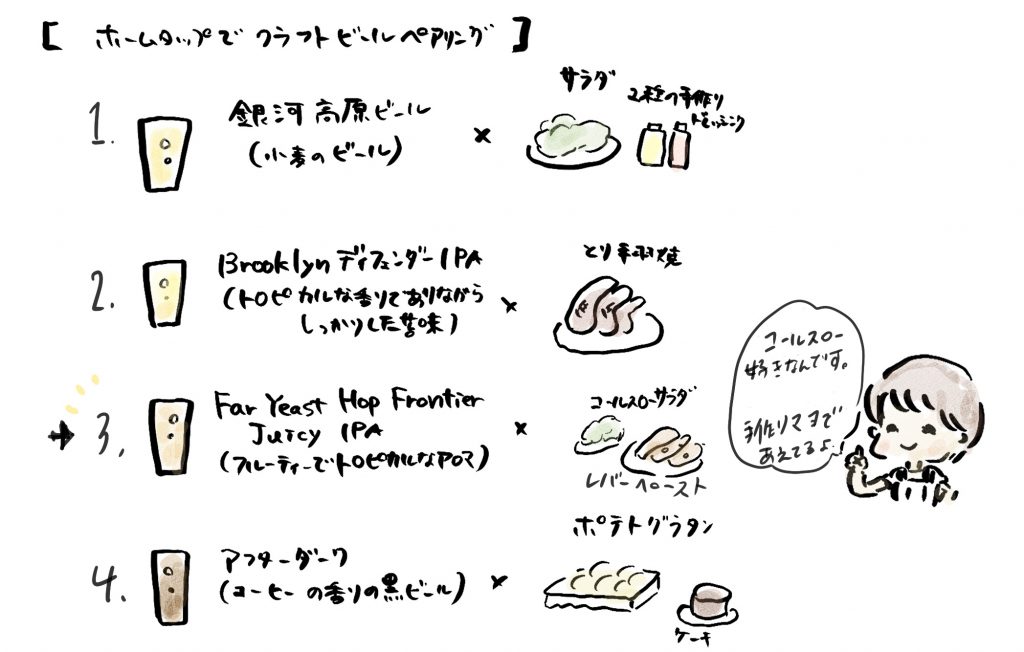 [ ホームタップで クラフトビールペアリング ]
1. 銀河高原ビール
(小麦のビール)
×
サラダ
2種の手作り
ドレッシング
2. Brooklyn ディフェンダー IPA
(トロピカルな香りでありながら
しっかりした苦味)
×
とり手羽焼
→ 3. Far Yeast Hop Frontier
Juicy IPA
(フルーティーでトロピカルなアロマ)
×
コールスローサラダ
レバーペースト
コールスロー
好きなんです。
手作りマヨで
あえてるよ
4. アフターダーク
(コーヒーの香りの黒ビール)
×
ポテトグラタン
ケーキ